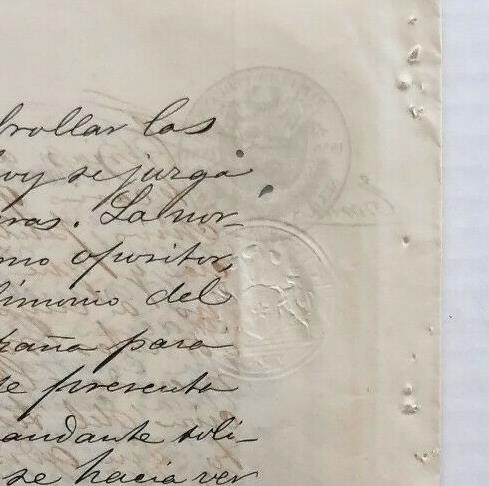 rrollar los
oy se juzga
ras. La nor-
mo opositor,
timonio del
paña para
se presenta
andante soli-
se hacia ver